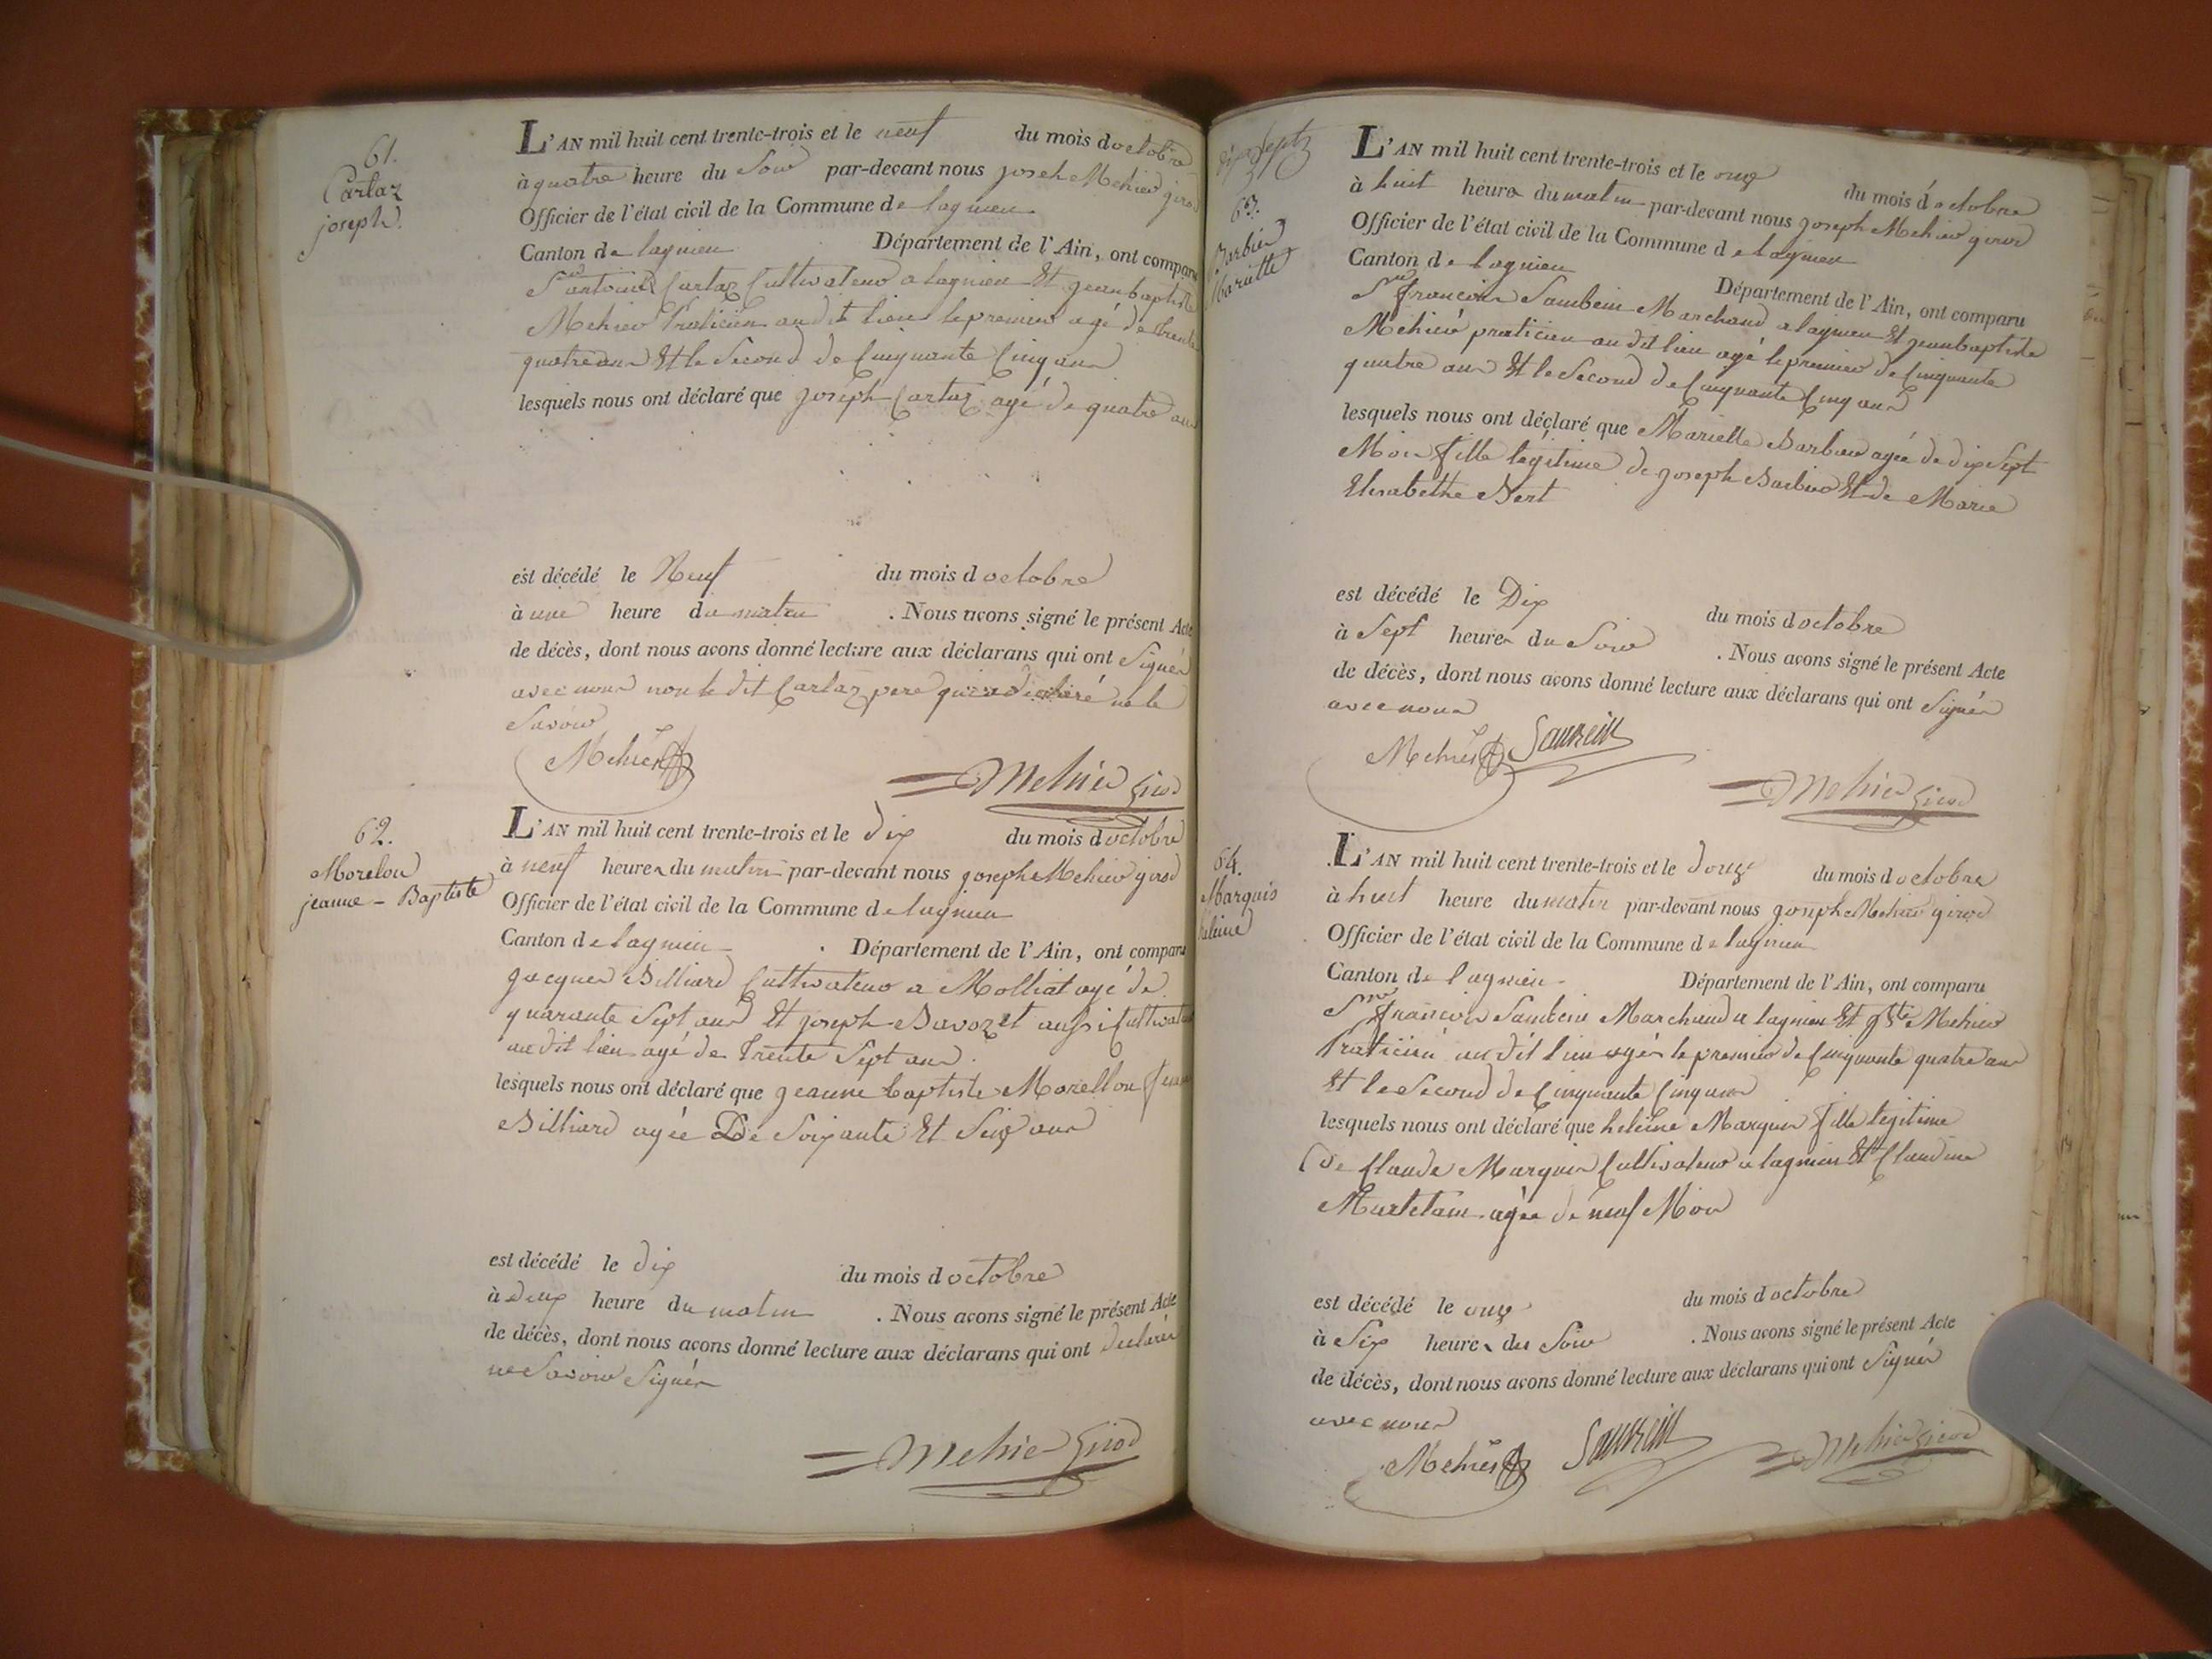 61.
Cartaz
joseph.
L'AN mil huit cent trente-trois et le neuf du mois d octobre
à quatre heure du Soir par-devant nous joseh Mehier girod
Officier de l'état civil de la Commune de lagnieu
Canton de lagnieu Département de l'Ain, ont comparu
Sr antoine Cartaz Cultivateur a lagnieu Et jeanbaptiste
Mehier Praticien audit lieu le premier agé de trente
quatre ans Et le Second de Cinquante Cinq ans
lesquels nous ont déclaré que joseph Cartaz agé de quatre ans
est décédé le Neuf du mois d octobre
à une heure du matin . Nous avons signé le présent Acte
de décès, dont nous avons donné lecture aux déclarans qui ont Signés
avec nous non le dit Cartaz pere qui a declaré ne le
Savoir
Mehier Mehier Girod
62.
Morelon
jeanne - Baptiste
L'AN mil huit cent trente-trois et le dix du mois d octobre
à neuf heures du matin par-devant nous joseph Mehier girod
Officier de l'état civil de la Commune de lagnieu
Canton de lagnieu . Département de l'Ain, ont comparu
jacques Billiard Cultivateur a Molliat agé de
quarante Sept ans Et joseph Bavozet aussi Cultivateur
au dit lieu agé de Trente Sept ans.
lesquels nous ont déclaré que jeanne baptiste Morellon
Billiard agée De Soixante Et Seize ans
est décédé le dix du mois d octobre
à deux heure du matin . Nous avons signé le présent Acte
de décès, dont nous avons donné lecture aux déclarans qui ont declarés
ne Savoir Signer
Mehier Girod
dix Sept
63.
Barbier
Mariette
L'AN mil huit cent trente-trois et le onze du mois d'octobre
à huit heures du matin par-devant nous joseph Mehier girod
Officier de l'état civil de la Commune de lagnieu
Canton de lagnieu Département de l'Ain, ont comparu
Sr françois Sambein Marchand a lagnieu Et jeanbaptiste
Mehier praticien au dit lieu agé le premier de Cinquante
quatre ans Et le Second de Cinquante Cinq ans
lesquels nous ont déclaré que Mariette Barbier agée de dix Sept
Mois fille legitime de joseph Barbier Et de Marie
Elisabethe Bert
est décédé le Dix du mois d octobre
à Sept heures du Soir . Nous avons signé le présent Acte
de décès, dont nous avons donné lecture aux déclarans qui ont Signés
avec nous
Mehier Mehier Girod
64.
Marquis
heleine
L'AN mil huit cent trente-trois et le douze du mois d octobre
à huit heure du matin par-devant nous joseph Mehier girod
Officier de l'état civil de la Commune de lagnieu
Canton de lagnieu Département de l'Ain, ont comparu
Sr françois Sambein Marchand a lagnieu Et jbte Mehier
Praticien au dit lieu agés le premier de Cinquante quatre ans
Et le Second de Cinquante Cinq ans
lesquels nous ont déclaré que heleine Marquis fille legitime
de Claude Marquis Cultivateur a lagnieu Et Claudine
Martelain agée de neuf Mois
est décédé le onze du mois d octobre
à Six heures du Soir . Nous avons signé le présent Acte
de décès, dont nous avons donné lecture aux déclarans qui ont Signés
avec nous
Mehier Mehier Girod